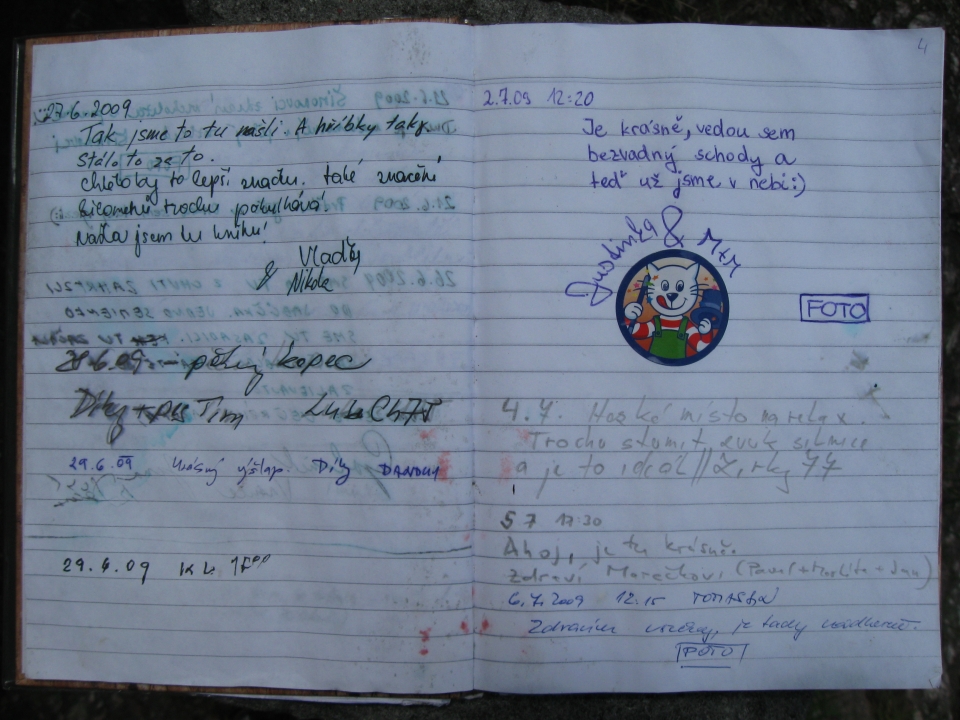 27.6.2009
Tak jsme to tu našli. A hříbky taky.
Stálo to za to.
chtělo by to lepší značku. také značení
kilometrů trochu pokulhává.
Našla jsem tu knihu!
Vladky
& Nikola
28.6.09 pěkný kopec
Díky Tim
29.6.09 krásný výšlap. Díky DANDUY
29.6.09 KL 17⁰⁰
4
2.7.09 12:20
Je krásně, vedou sem
bezvadný schody a
teď už jsme v nebi :)
Justinka & M+M
FOTO
4.7. Hezké místo na relax.
Trochu stlumit zvuk silnice
a je to ideál
5 7 17:30
Ahoj, je tu krásně.
Zdraví Moračkovi (Pavel+Markéta+Jan)
6.7.2009 12:15
Zdravím všechny, je tady nádherně.
FOTO